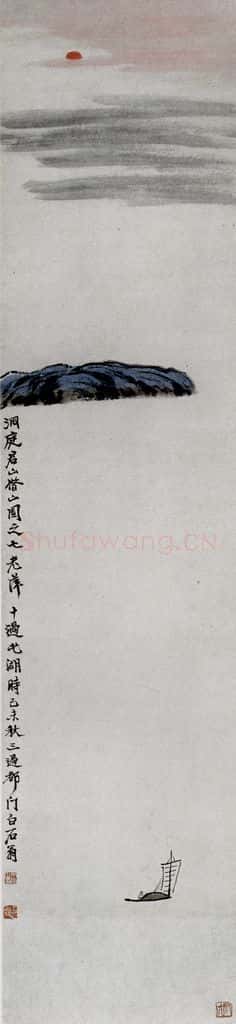 洞庭君山借山图之七老萍十过此湖时己未秋三过都门白石翁
Shufawang.CN